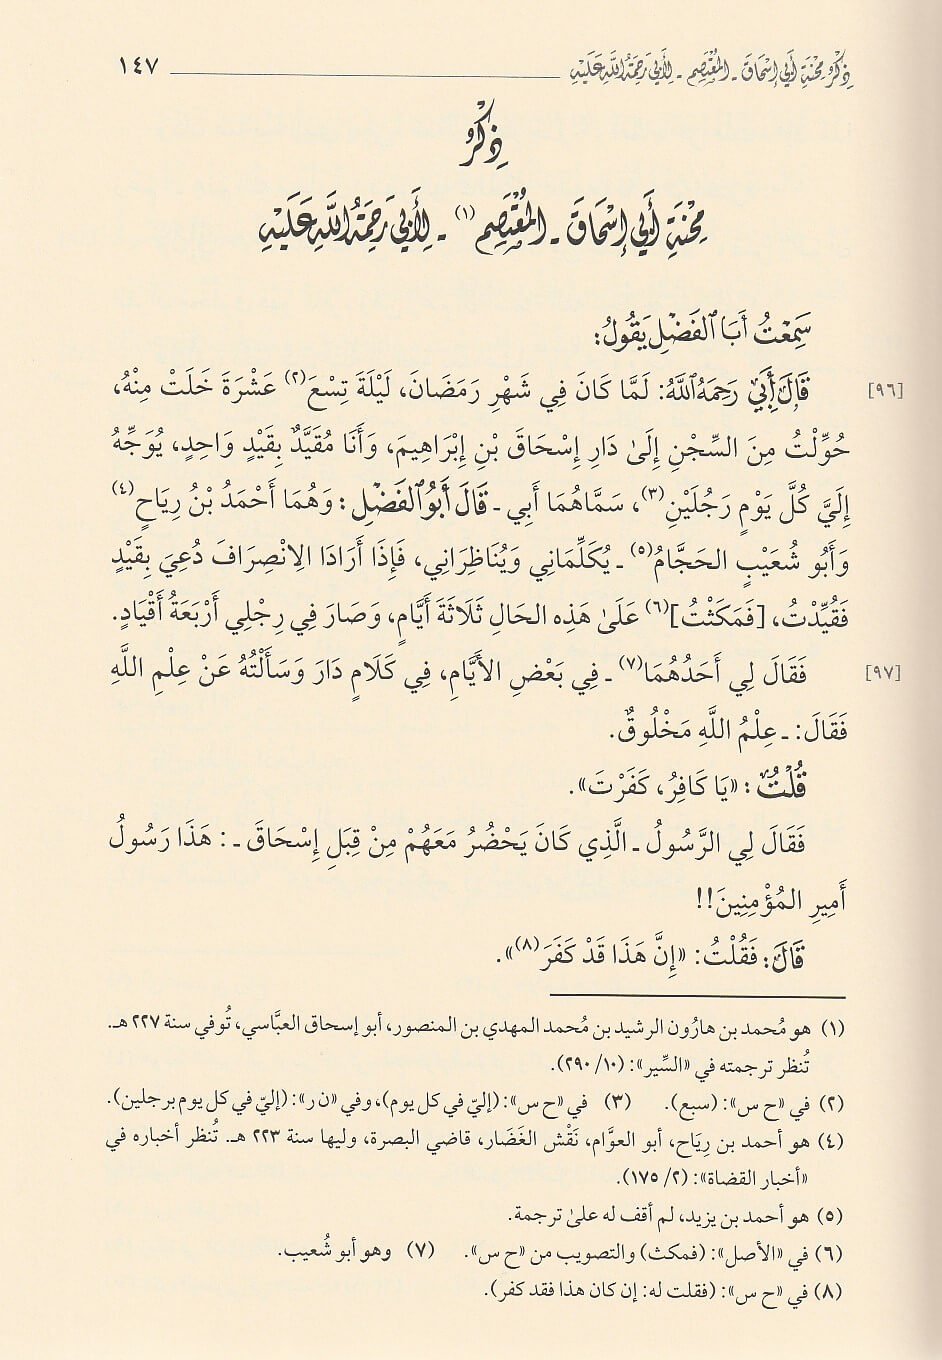 ذِكْرُ مِحْنَةِ أَبِي إِسْحَاقَ ـ المُعْتَصِمِ ـ لِأَبِي رَحْمَةُ اللَّهِ عَلَيْهِ ١٤٧
ذِكْرُ
مِحْنَةِ أَبِي إِسْحَاقَ ـ المُعْتَصِمِ (١) ـ لِأَبِي رَحْمَةُ اللَّهِ عَلَيْهِ
سَمِعْتُ أَبَا الفَضْلِ يَقُولُ:
[٩٦] قَالَ أَبِي رَحِمَهُ اللَّهُ: لَمَّا كَانَ فِي شَهْرِ رَمَضَانَ، لَيْلَةَ تِسْعَ(٢) عَشْرَةَ خَلَتْ مِنْهُ،
حُوِّلْتُ مِنَ السِّجْنِ إِلَىٰ دَارِ إِسْحَاقَ بْنِ إِبْرَاهِيمَ، وَأَنَا مُقَيَّدٌ بِقَيْدٍ وَاحِدٍ، يُوَجِّهُ
إِلَيَّ كُلَّ يَوْمٍ رَجُلَيْنِ(٣)، سَمَّاهُمَا أَبِي ـ قَالَ أَبُو الفَضْلِ: وَهُمَا أَحْمَدُ بْنُ رِيَاحٍ(٤)
وَأَبُو شُعَيْبٍ الحَجَّامُ(٥) ـ يُكَلِّمَانِي وَيُنَاظِرَانِي، فَإِذَا أَرَادَا الِانْصِرَافَ دُعِيَ بِقَيْدٍ
فَقُيِّدْتُ، [فَمَكَثْتُ](٦) عَلَىٰ هَذِهِ الحَالِ ثَلَاثَةَ أَيَّامٍ، وَصَارَ فِي رِجْلِي أَرْبَعَةُ أَقْيَادٍ.
[٩٧] فَقَالَ لِي أَحَدُهُمَا(٧) ـ فِي بَعْضِ الأَيَّامِ، فِي كَلَامٍ دَارَ وَسَأَلْتُهُ عَنْ عِلْمِ اللَّهِ
فَقَالَ: ـ عِلْمُ اللَّهِ مَخْلُوقٌ.
قُلْتُ: «يَا كَافِرُ، كَفَرْتَ».
فَقَالَ لِي الرَّسُولُ ـ الَّذِي كَانَ يَحْضُرُ مَعَهُمْ مِنْ قِبَلِ إِسْحَاقَ ـ: هَذَا رَسُولُ
أَمِيرِ المُؤْمِنِينَ!!
قَالَ: فَقُلْتُ: «إِنَّ هَذَا قَدْ كَفَرَ(٨)».
(١) هو مُحمد بن هارُون الرشيد بن مُحمد المهدي بن المنصور، أبو إسحاق العبَّاسي، تُوفي سنة ٢٢٧ هـ.
تُنظر ترجمته في «السِّير»: (١٠/ ٢٩٠).
(٢) في «ح س»: (سبع). (٣) في «ح س»: (إليّ في كل يوم)، وفي «ن ر»: (إليّ في كل يوم برجلين).
(٤) هو أحمد بن رِيَاح، أبو العوَّام، نَقْش الغَضَار، قاضي البصرة، وليها سنة ٢٢٣ هـ. تُنظر أخباره في
«أخبار القضاة»: (٢/ ١٧٥).
(٥) هو أحمد بن يزيد، لم أقف له علىٰ ترجمة.
(٦) في «الأصل»: (فمكث) والتصويب من «ح س». (٧) وهو أبو شُعيب.
(٨) في «ح س»: (فقلت له: إن كان هذا فقد كفر).